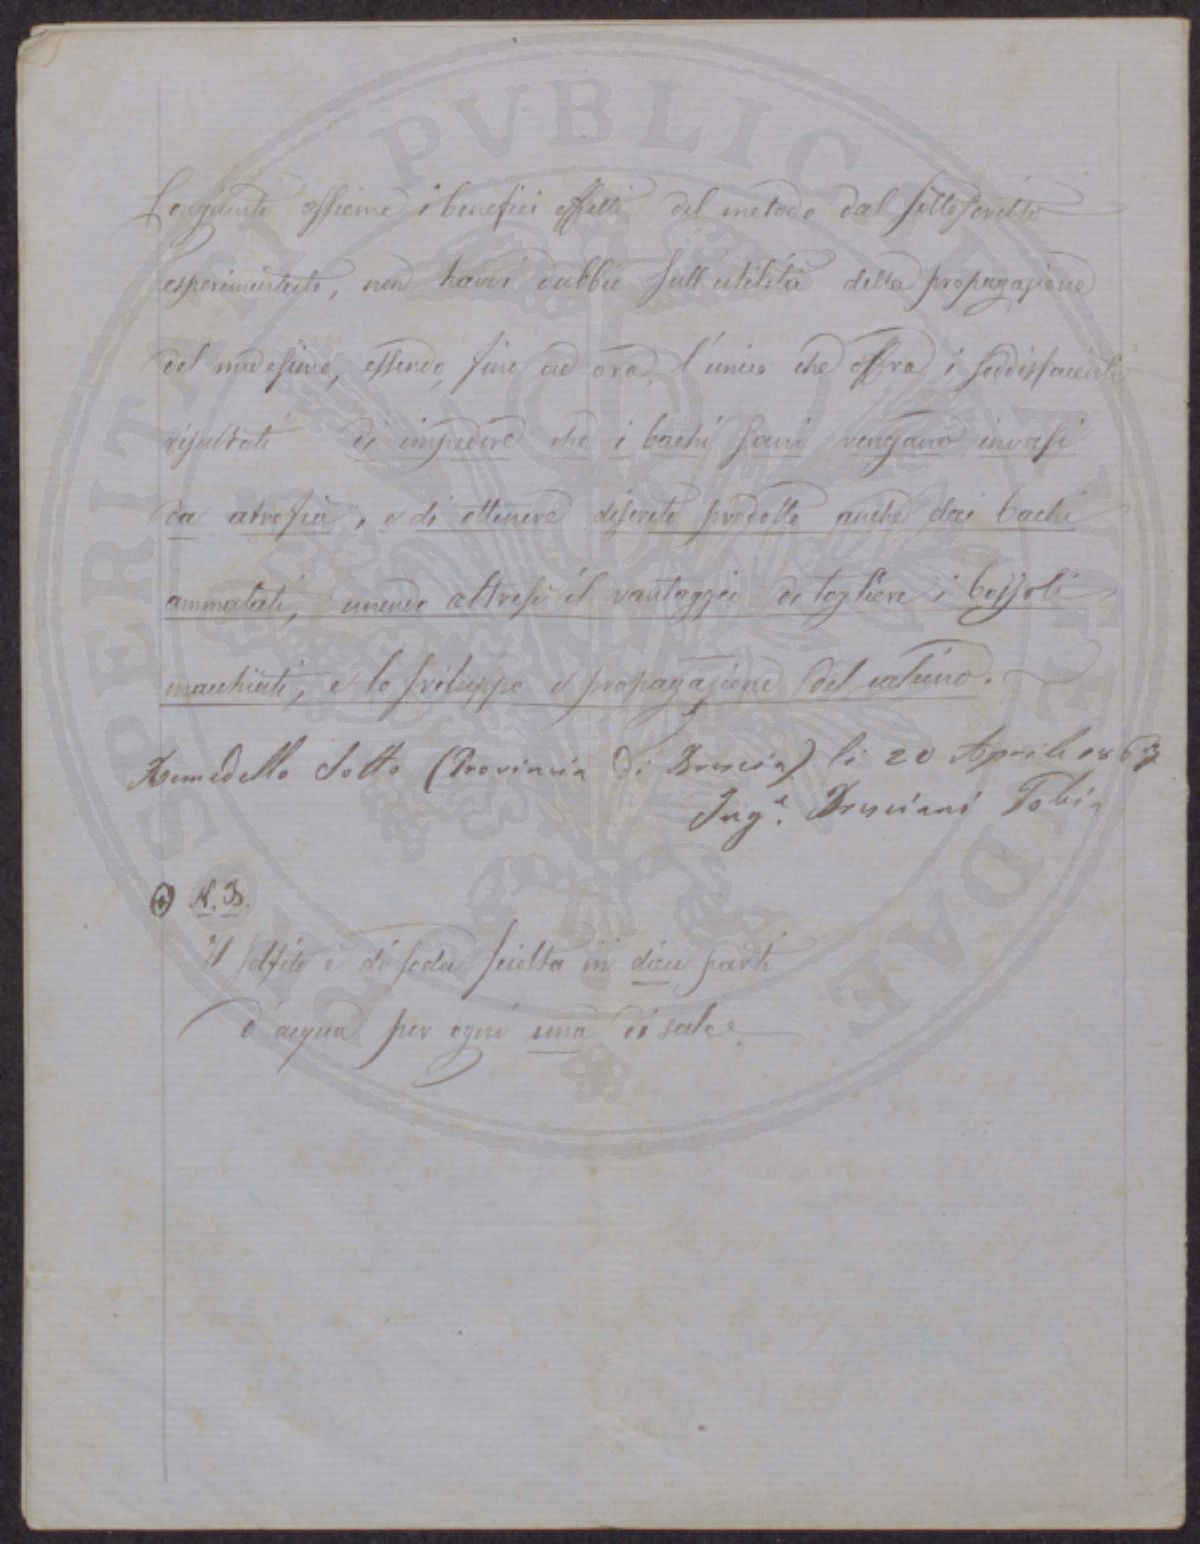 Congiunti assieme i benefici effetti del metodo dal sottoscritto
esperimentato, non havvi dubbio sull'utilità della propagazione
del medesimo, essendo, fino ad ora, l'unico che offra i soddisfacenti
risultati di impedire che i bachi sani vengano invasi
da atrofia, e di ottenere discreto prodotto anche dai bachi
ammalati, unendo altresì il vantaggio di togliere i bozzoli
macchiati, e lo sviluppo e propagazione del calcino.
Remedello Sotto (Provincia di Brescia) li 20 Aprile 1863
Ing.e Bresciani Tobia
N.B.
il solfito è di soda sciolta in dieci parti
d'acqua per ogni una di sale.
PROSPERITATI PVBLICAE AVGENDAE